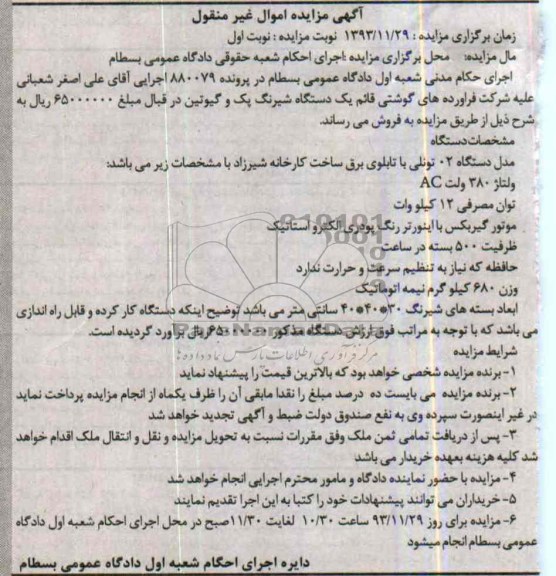 آگهی مزایده اموال غیر منقول
زمان برگزاری مزایده : ۱۳۹۳/۱۱/۲۹ نوبت مزایده : نوبت اول
مال مزایده: محل برگزاری مزایده :اجرای احکام شعبه حقوقی دادگاه عمومی بسطام
اجرای حکام مدنی شعبه اول دادگاه عمومی بسطام در پرونده ۸۸۰۰۷۹ اجرایی آقای علی اصغر شعبانی
علیه شرکت فراورده های گوشتی قائم یک دستگاه شیرنگ پک و گیوتین در قبال مبلغ ۶۵۰۰۰۰۰۰ ریال به
شرح ذیل از طریق مزایده به فروش می رساند.
مشخصات دستگاه
مدل دستگاه ۰۲ تونلی با تابلوی برق ساخت کارخانه شیرزاد با مشخصات زیر می باشد:
ولتاژ ۳۸۰ ولت AC
توان مصرفی ۱۲ کیلو وات
موتور گیربکس با اینورتر رنگ پودری الکترو استاتیک
ظرفیت ۵۰۰ بسته در ساعت
حافظه که نیاز به تنظیم سرعت و حرارت ندارد
وزن ۶۸۰ کیلو گرم نیمه اتوماتیک
ابعاد بسته های شیرنگ ۳۰*۴۰*۴۰ سانتی متر می باشد توضیح اینکه دستگاه کار کرده و قابل راه اندازی
می باشد که با توجه به مراتب فوق ارزش دستگاه مذکور به ریال برآورد گردیده است.
شرایط مزایده
۱- برنده مزایده شخصی خواهد بود که بالاترین قیمت را پیشنهاد نماید
۲- برنده مزایده می بایست ده درصد مبلغ را نقدا مابقی آن را ظرف یکماه از انجام مزایده پرداخت نماید
در غیر اینصورت سپرده وی به نفع صندوق دولت ضبط و آگهی تجدید خواهد شد
۳- پس از دریافت تمامی ثمن ملک وفق مقررات نسبت به تحویل مزایده و نقل و انتقال ملک اقدام خواهد
شد کلیه هزینه بعهده خریدار می باشد
۴- مزایده با حضور نماینده دادگاه و مامور محترم اجرایی انجام خواهد شد
۵- خریداران می توانند پیشنهادات خود را کتبا به این اجرا تقدیم نمایند
۶- مزایده برای روز ۹۳/۱۱/۲۹ ساعت ۱۰/۳۰ لغایت ۱۱/۳۰صبح در محل اجرای احکام شعبه اول دادگاه
عمومی بسطام انجام میشود
دایره اجرای احگام شعبه اول دادگاه عمومی بسطام